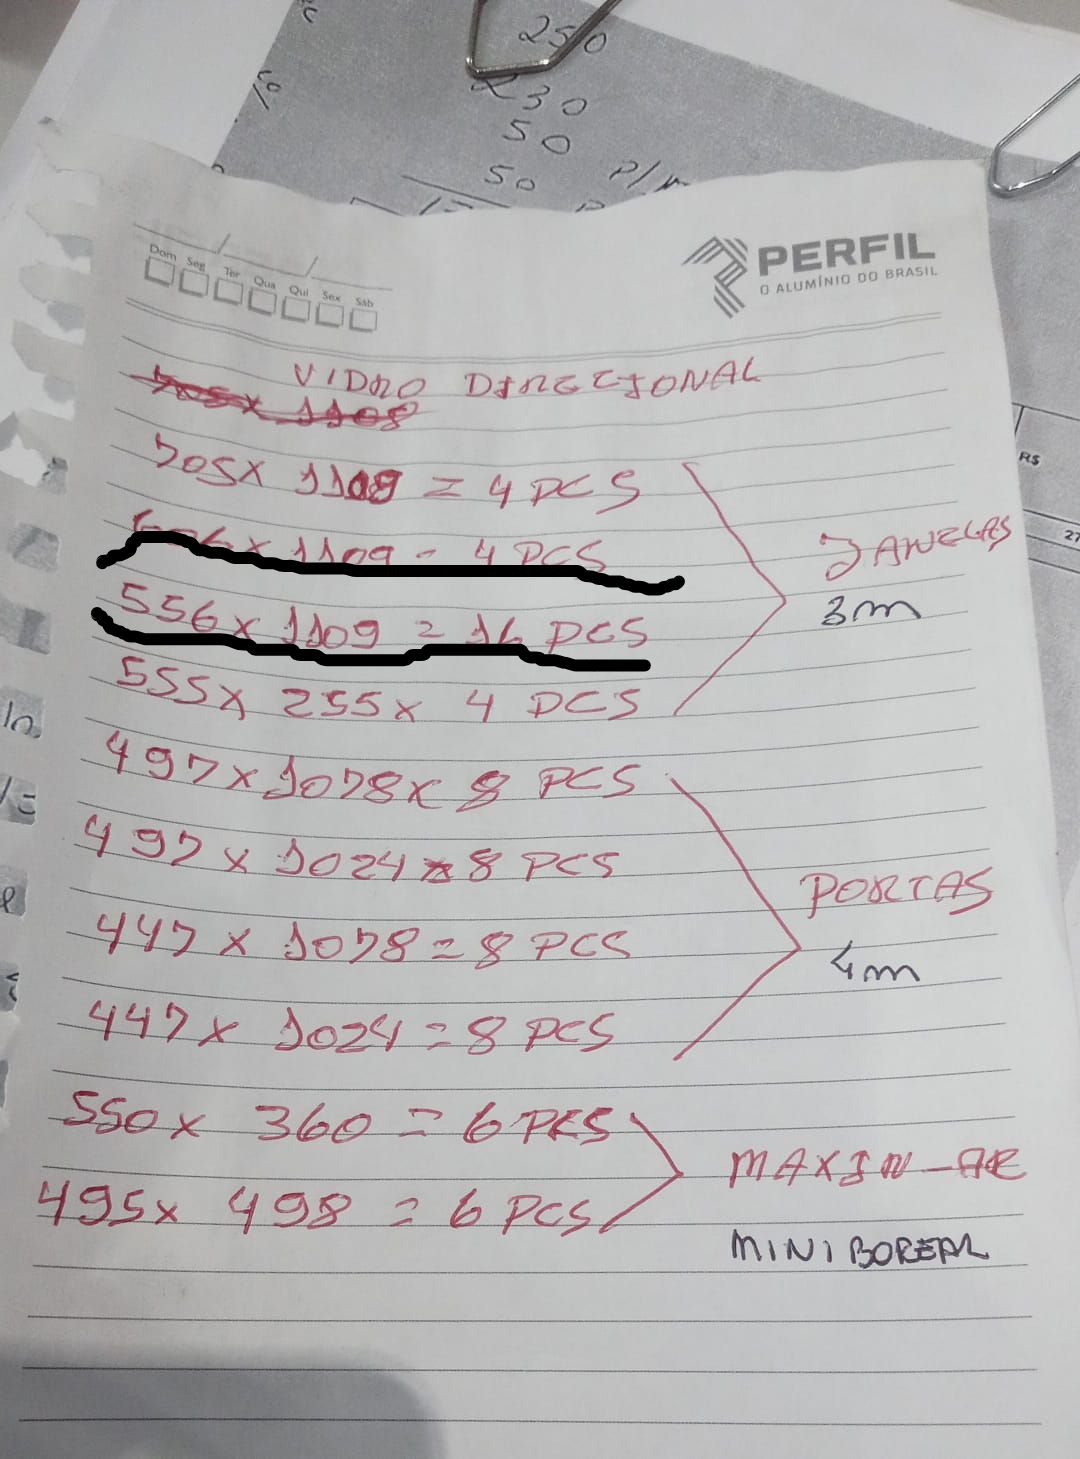 250
230
50
50 P/M
Dom Seg Ter Qua Qui Sex Sáb
PERFIL
O ALUMÍNIO DO BRASIL
VIDRO DIRECIONAL
705x 1108
705x 1109 = 4 PCS
x 1109 - 4 PCS
556x 1109 = 16 PCS
555x 255x 4 PCS
JANELAS
3m
497x 1078x 8 PCS
497x 1024x8 PCS
447x 1078=8 PCS
447x 1024=8 PCS
PORTAS
4m
550x 360 = 6 PCS
495x 498 = 6 PCS
MAXIN-AR
MINI BOREAL
R$
27